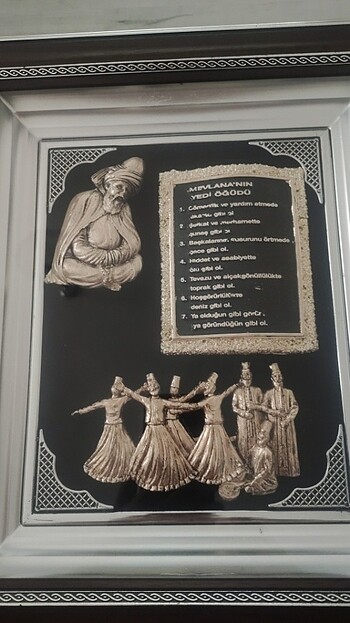 MEVLANA'NIN
YEDİ ÖĞÜDÜ
1. Cömertlik ve yardım etmede
akarsu gibi ol
2. Şefkat ve merhamette
güneş gibi ol
3. Başkalarının kusurunu örtmede
gece gibi ol.
4. Hiddet ve asabiyette
ölü gibi ol.
5. Tevazu ve alçakgönüllülükte
toprak gibi ol.
6. Hoşgörürlükte
deniz gibi ol.
7. Ya olduğun gibi görün,
ya göründüğün gibi ol.